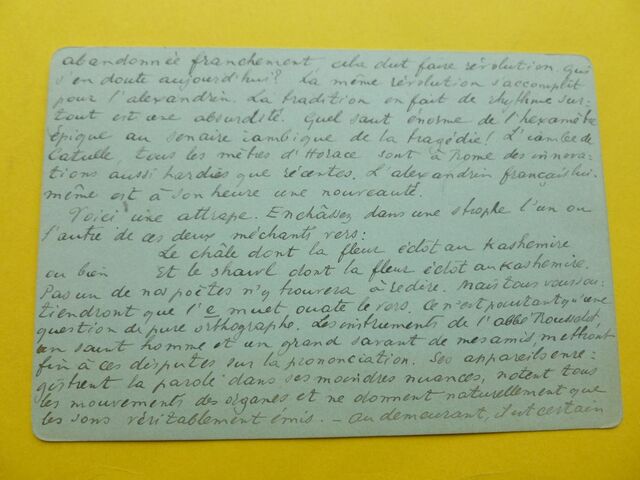 abandonnée franchement cela dut faire révolution. Qui
s'en doute aujourd'hui? La même révolution s'accomplit
pour l'alexandrin. La tradition en fait de rhythme sur-
tout est une absurdité. Quel saut énorme de l'hexamètre
épique au senaire iambique de la tragédie! L'iambe de
Catulle, tous les mètres d'Horace sont à Rome des innova-
tions aussi hardies que récentes. L'alexandrin français lui-
même est à son heure une nouveauté.
Voici une attrape. Enchâssez dans une strophe l'un ou
l'autre de ces deux méchants vers:
Le châle dont la fleur éclot au Kashemire
ou bien Et le shawl dont la fleur éclot au Kashemire.
Pas un de nos poètes n'y trouvera à redire. Mais tous vous sou-
tiendront que l'e muet ouate le vers. Ce n'est pourtant qu'une
question de pure orthographe. Les instruments de l'abbé Rousselot,
un saint homme et un grand savant de mes amis, mettront
fin à ces disputes sur la prononciation. Ses appareils enre-
gistrent la parole dans ses moindres nuances, notent tous
les mouvements des organes et ne donnent naturellement que
les sons véritablement émis. - Au demeurant, il est certain